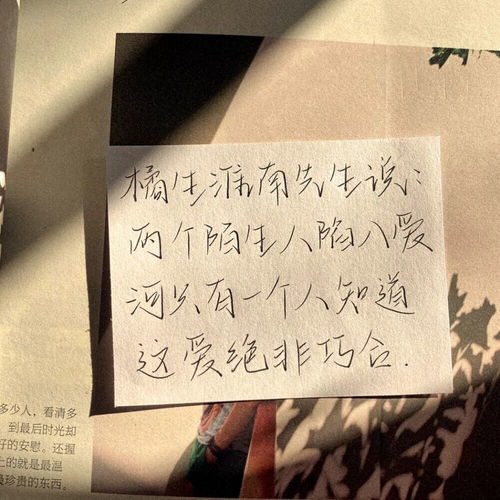 橘生淮南先生说：
两个陌生人陷入爱
河只有一个人知道
这爱绝非巧合.
多少人，看清多
到最后时光却
好的安慰。还握
上的就是最温
最珍贵的东西。